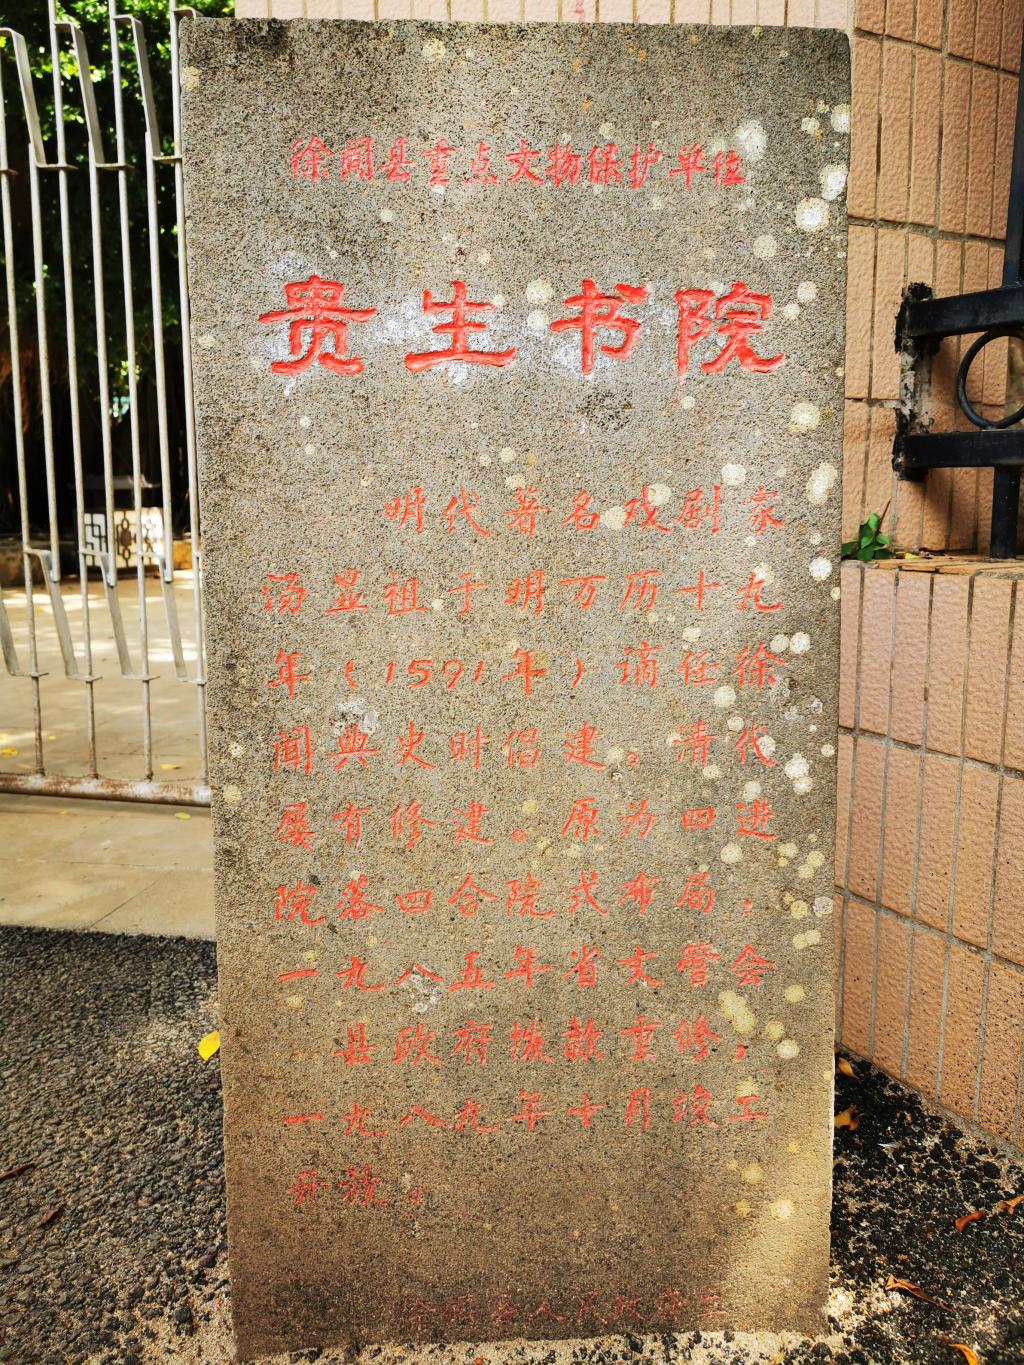 徐闻县重点文物保护单位
贵生书院
明代著名戏剧家
汤显祖于明万历十九
年(1591年)谪任徐
闻典史时倡建。清代
屡有修建。原为四进
院落四合院式布局,
一九八五年省文管会
县政府拨款重修,
一九八九年十月竣工
开放。
徐闻县人民政府立